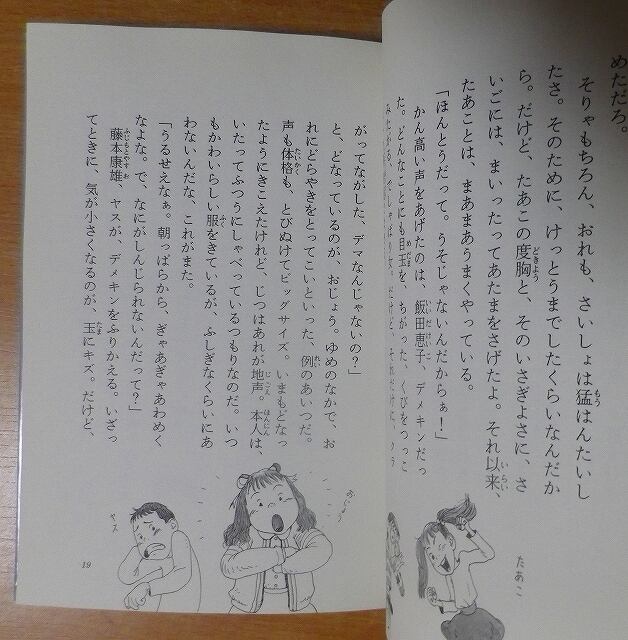 めただろ。
そりゃもちろん、おれも、さいしょは猛はんたいし
たさ。そのために、けっとうまでしたくらいなんだか
ら。だけど、たあこの度胸と、そのいさぎよさに、さ
いごには、まいったってあたまをさげたよ。それ以来、
たあことは、まあまあうまくやっている。
「ほんとうだって。うそじゃないんだからぁ!」
かん高い声をあげたのは、飯田恵子、デメキンだっ
た。どんなことにも目玉を、ちがった、くびをつっこ
みたがる、でしゃばり女。だけど、それだけに、
たあこ
がってながした、デマなんじゃないの?」
と、どなっているのが、おじょう。ゆめのなかで、お
れにどらやきをとってこいといった、例のあいつだ。
声も体格も、とびぬけてビッグサイズ。いまもどなっ
たようにきこえたけれど、じつはあれが地声。本人は、
いたってふつうにしゃべっているつもりなのだ。いつ
もかわいらしい服をきているが、ふしぎなくらいにあ
わないんだな、これがまた。
「うるせえなぁ。朝っぱらから、ぎゃあぎゃあわめく
なよな。で、なにがしんじられないんだって?」
藤本康雄、ヤスが、デメキンをふりかえる。いざっ
てときに、気が小さくなるのが、玉にキズ。だけど、
おじょう
ヤス
19